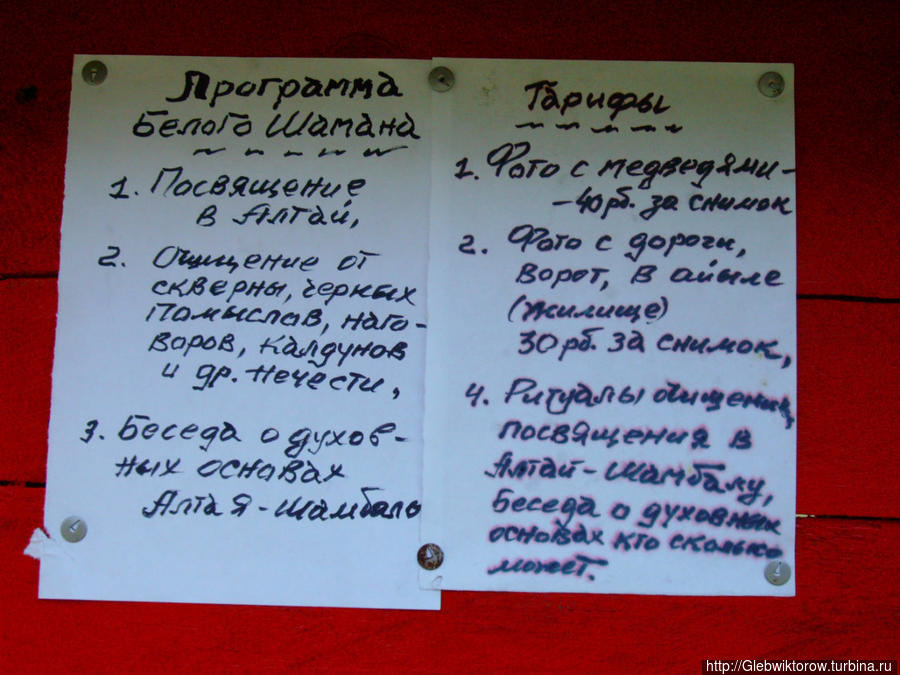 Программа
Белого Шамана
1. Посвящение
в Алтай,
2. Очищение от
скверны, черных
помыслав, наго-
воров, калдунов
и др. нечести,
3. Беседа о духов-
ных основах
Алтая-Шамбалы
Тарифы
1. Фото с медведями-
-40рб. за снимок
2. Фото с дороги,
ворот, в айыле
(жилище)
30рб. за снимок,
4. Ритуалы очищения,
посвящения в
Алтай-Шамбалу,
Беседа о духовных
основах кто сколько
может.
http://Glebwiktorow.turbina.ru